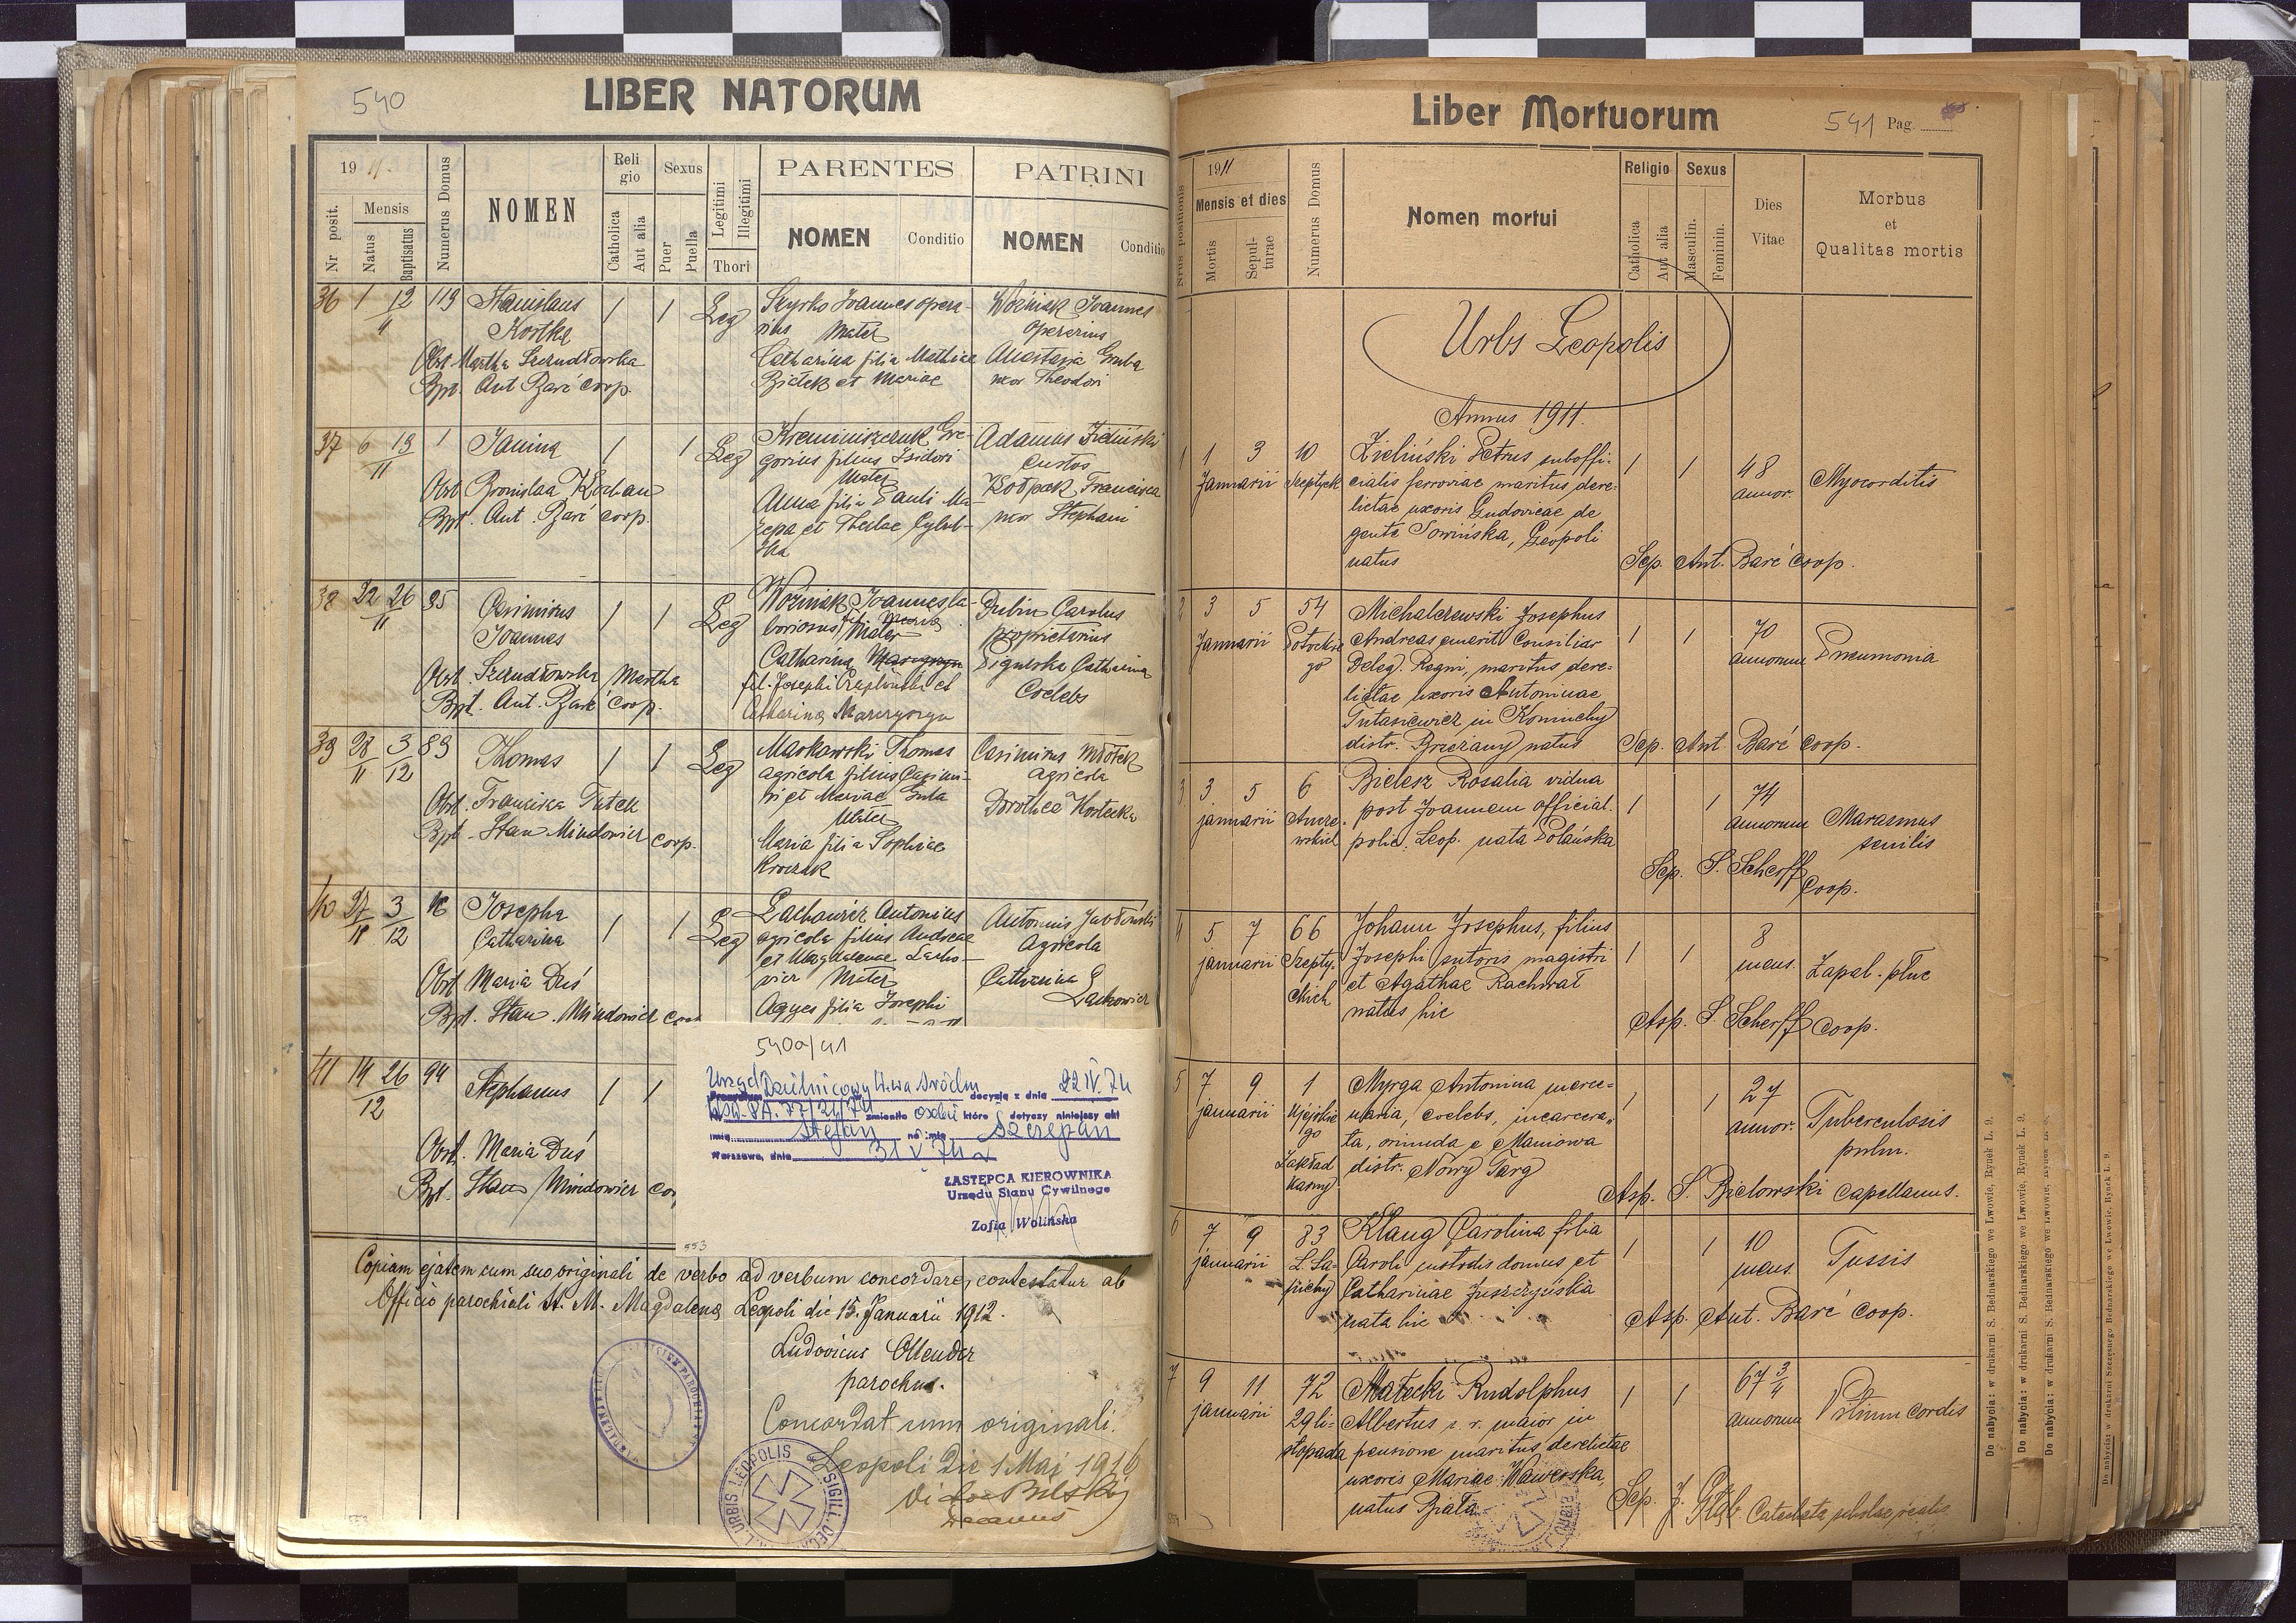 540
LIBER NATORUM
19 11.
Nr posit.
Mensis
Natus
Baptisatus
Numerus Domus
NOMEN
Reli
gio
Catholica
Aut alia
Sexus
Puer
Puella
Legitimi
Illegitimi
Thori
PARENTES
NOMEN
Conditio
PATRINI
NOMEN
Conditio
36 1 12/11 119 Stanislaus
Kostka
1 1 Leg
Joannes opera-
rius Mater
Catharina filia Mathiae
et Mariae
Woźniak Joannes
operarius
Anastasia
uxor Theodori
Obst. Martha Szczudłowska
Bpt. Ant Baré coop.
37 6 19/11 1 Janina
1 1 Leg
Gre-
gorius filius Isidori
Mater
Anna filia Pauli Ma-
zepa et Theclae
Adamus Zieliński
custos
Kołpak Francisca
uxor Stephani
Obst Bronislaa Kochan
Bpt. Ant. Baré coop.
38 22 26/11 95 Casimirus
Joannes
1 1 Leg
Woźniak Joannes la-
boriosus Mater
Catharina
fil. Josephi et
Catharina
Dubin Carolus
proprietarius
Catharina
Coelebs
Obst. Szczudłowska Martha
Bpt. Ant. Baré coop.
39 28/11 3/12 89 Thomas
1 1 Leg
Markowski Thomas
agricola filius Casimi-
ri et Mariae
Mater
Maria filia Sophiae
Kroczak
Casimirus Młotek
agricola
Dorothea Kostecka
Obst. Franciska Tutek
Bpt. Stan. Mindowicz coop.
40 27/11 3/12 16 Josepha
Catharina
1 1 Leg
Lachowicz Antonius
agricola filius Andreae
et Magdalenae Lacho-
wicz Mater
Agnes filia Josephi
Antonius Jabłoński
Agricola
Catharina
Lachowicz
Obst Maria Duś
Bpt. Stan. Mindowicz
41 14 26/12 94 Stephanus
1 1
Obst. Maria Duś
Bpt. Stan Mindowicz
540a/41
Urząd Dzielnicowy W-wa Śródm decyzją z dnia 22 IV 74
zmieniło osobie której dotyczy niniejszy akt
imię Stefan na imię Szczepan
Warszawa, dnia 31 V 74
ZASTĘPCA KIEROWNIKA
Urzędu Stanu Cywilnego
Zofia Wolińska
553
Copiam ejatem cum suo originali de verbo ad verbum concordare, contestatur ab
Officio parochiali St. M. Magdalena Leopoli die 15. Januarii 1912.
Ludovicus Ollender
parochus.
Concordat cum originali.
Leopoli Die 1 Maj 1916
Decanus
Liber Mortuorum
541 Pag.
Nrus positionis
1911
Mensis et dies
Mortis
Sepul-
turae
Numerus Domus
Nomen mortui
Religio
Catholica
Aut alia
Sexus
Masculin.
Feminin.
Dies
Vitae
Morbus
et
Qualitas mortis
Urbs Leopolis
Annus 1911.
1 1 3 Januarii 10 Szeptyck
Zieliński Petrus suboffi-
cialis ferroviae maritus dere-
lictae uxoris Ludovicae de
gente Sowińska, Leopoli
natus
1 1 48
annor. Myocorditis
Sep. Ant. Baré coop.
2 3 5 Januarii 54 Potockie
go
Michalczewski Josephus
Andreas emerit. Consiliar
Deleg. Regni, maritus dere-
lictae uxoris Antoninae
Tutasiewicz in Koniuchy
distr. Brzeżany natus
1 1 70
annorum Pneumonia
Sep. Ant Baré coop.
3 3 5 januarii 6
Bielesz Rosalia vidua
post Joannem official.
polic. Leop. nata Polańska
1 1 74
annorum Marasmus
senilis
Sep. S. Scherff
Coop.
4 5 7 januarii 66 Szepty-
ckich
Johann Josephus, filius
Josephi sutoris magistri
et Agathae Rachwał
natus hic
1 1 8
mens. Zapal. płuc
Asp. S. Scherff coop.
5 7 9 januarii 1 Ujejskie
go
Zakład
karny
Myrga Antonina merce-
naria, coelebs, incarcera-
ta, oriunda e Maniowa
distr. Nowy Targ
1 1 27
annor. Tuberculosis
pulm.
Asp. S. Bielowski capellanus.
6 7 9 januarii 83 L. Sa-
piehy
Klaug Carolina filia
Caroli custodis domus et
Catharinae Juszczyńska
nata hic
1 1 10
mens. Tussis
Asp. Ant. Baré coop.
7 9 11 januarii 72 29 li-
stopada
Małecki Rudolphus
Albertus c. r. maior in
pensione maritus derelictae
uxoris Mariae Wawerska,
natus Biała
1 1 67 3/4
annorum Vitium cordis
Sep. J. Głąb Catecheta scholae realis
Do nabycia: w drukarni S. Bednarskiego we Lwowie, Rynek L. 9.
Do nabycia: w drukarni S. Bednarskiego we Lwowie, Rynek L. 9.
Do nabycia: w drukarni S. Bednarskiego we Lwowie, Rynek L. 9.
Do nabycia: w drukarni Szczęsnego Bednarskiego we Lwowie, Rynek L. 9.